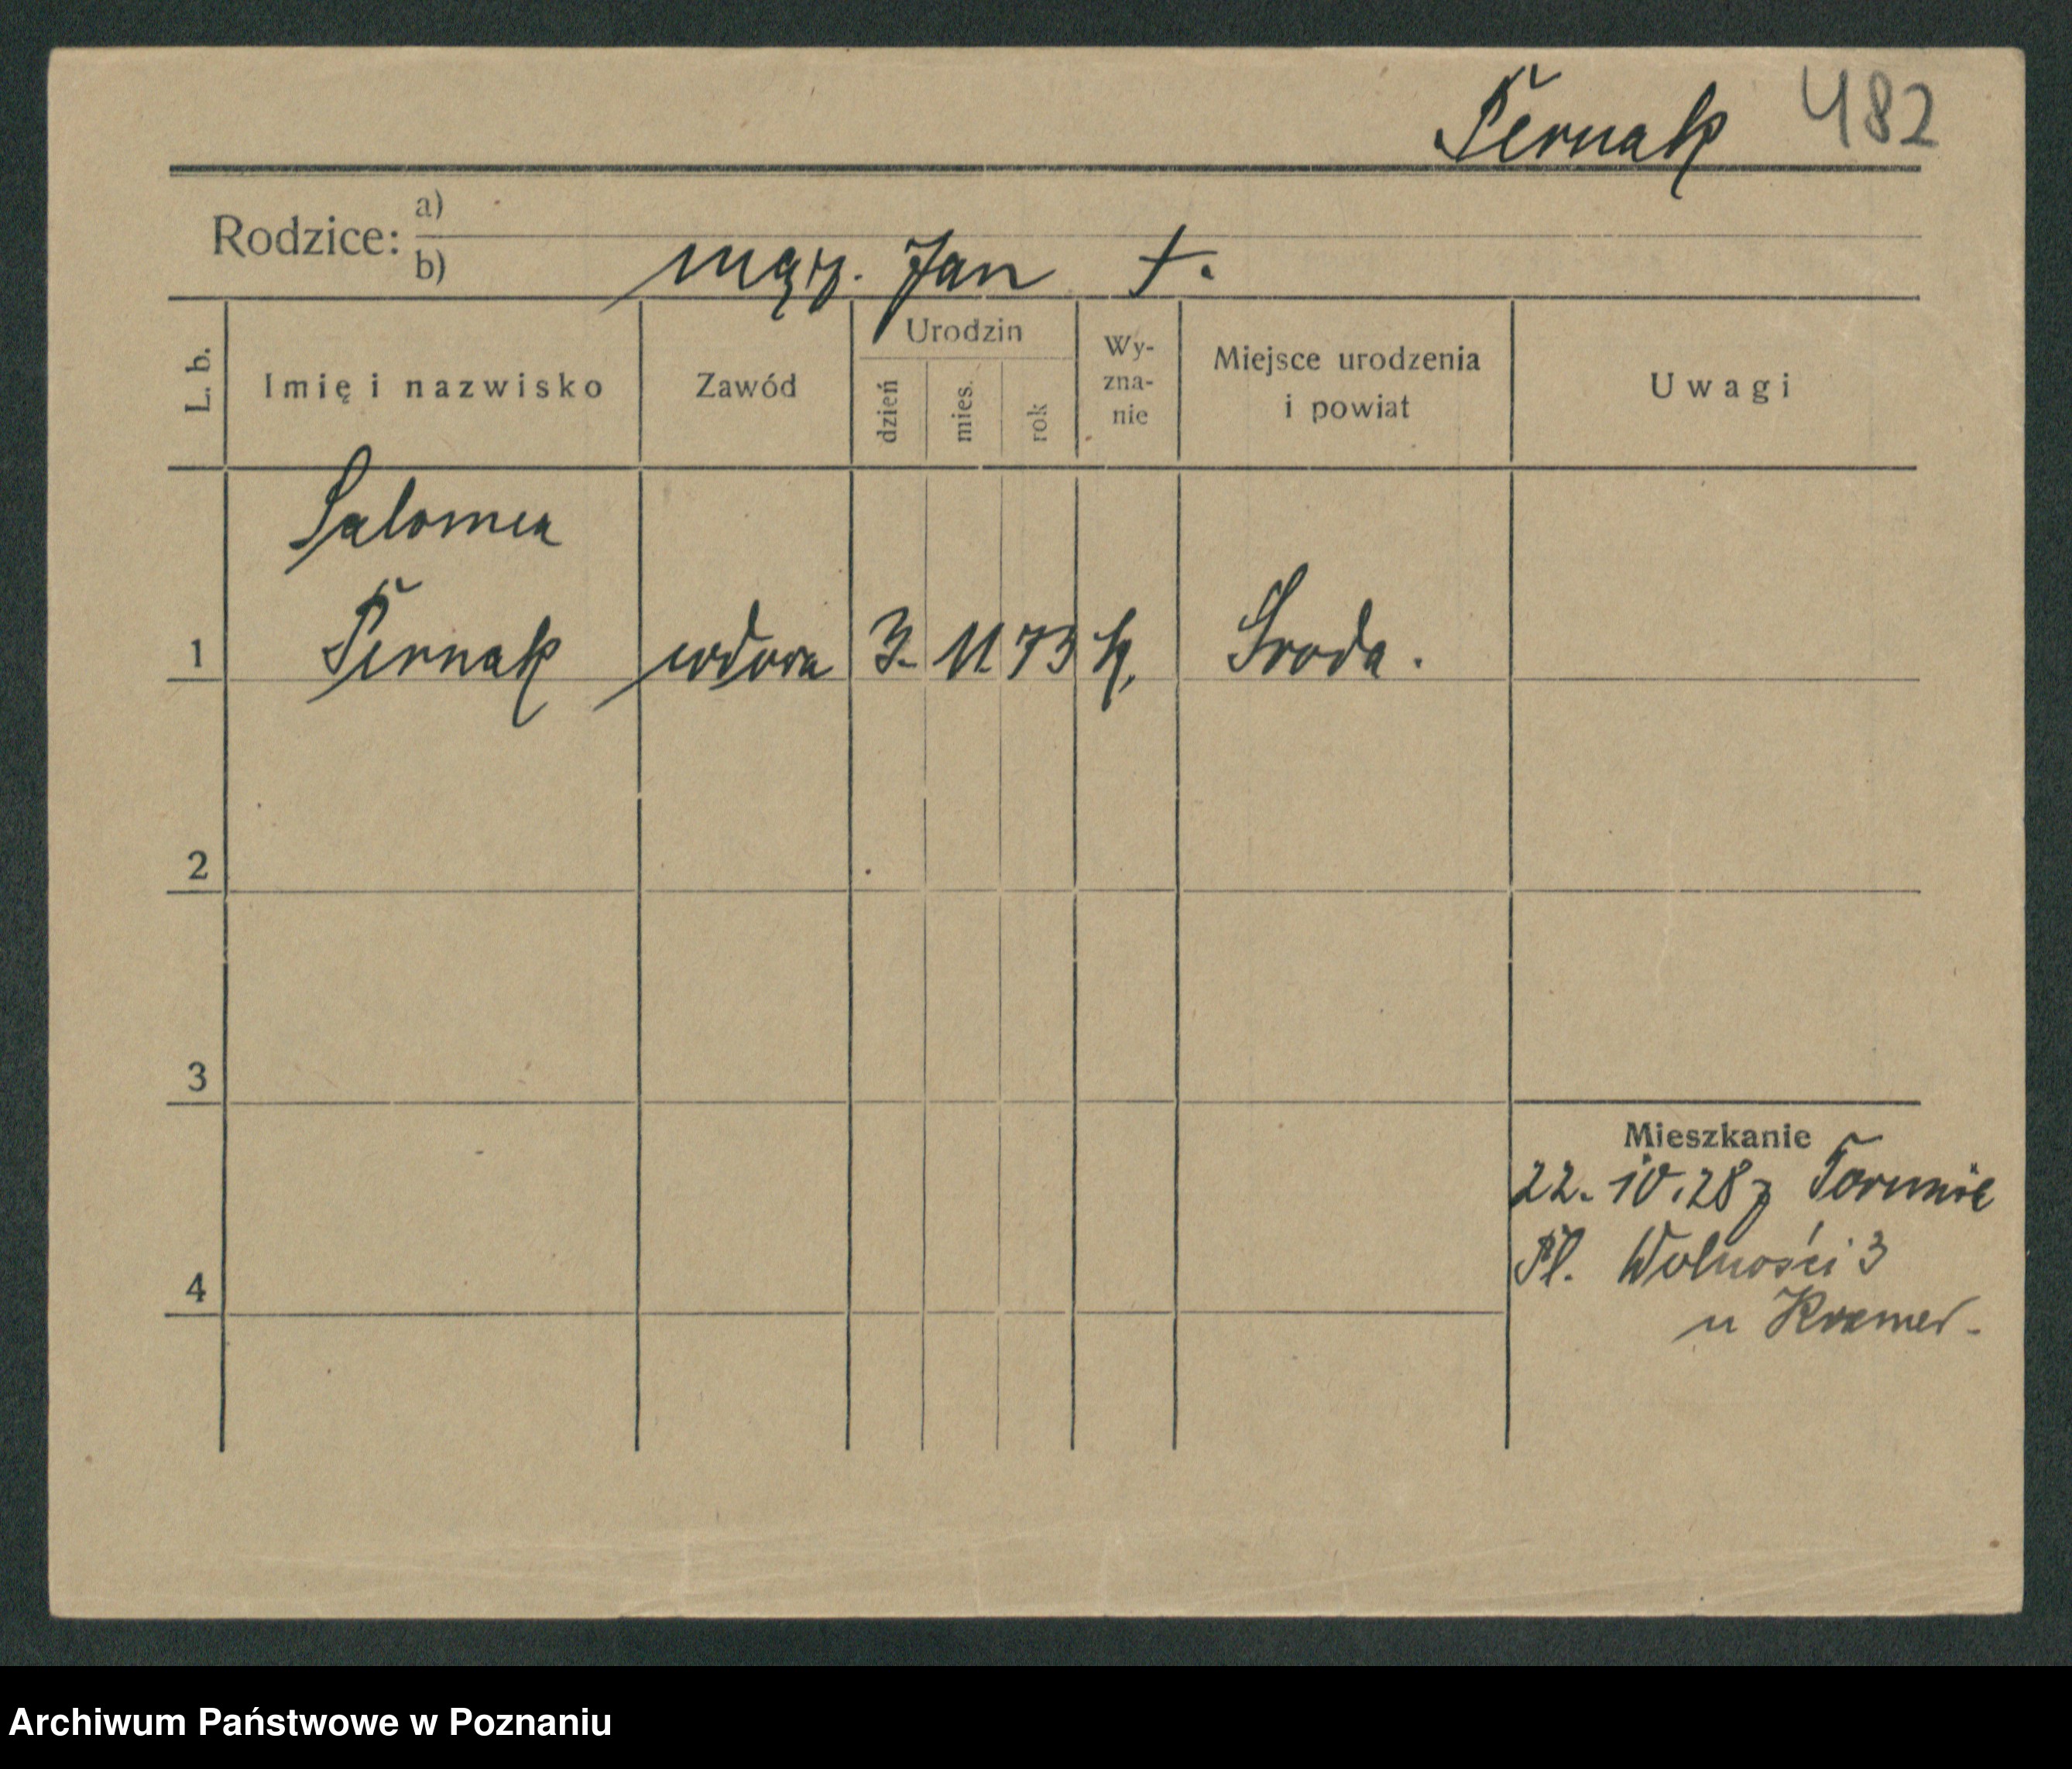 Pernak 482
Rodzice: a)
b) mąż. Jan †.
L. b. Imię i nazwisko Zawód Urodzin dzień mies. rok Wy-zna-nie Miejsce urodzenia i powiat Uwagi
Salomea
1 Pernak wdowa 3. 11 73 k. Sroda.
2
3
4
Mieszkanie
22. 10. 28 z
Pl. Wolności 3
u Kremer.
Archiwum Państwowe w Poznaniu